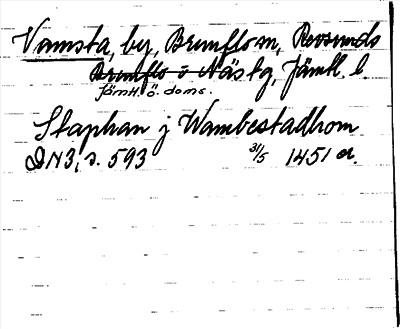 Vamsta, by, Brunflo sn, Revsunds
Brunflo o Näs tg, Jämtl. l.
Jämtl. ö. doms.
Staphan j Wambestadhom
DN3, s. 593 31/5 1451 or.